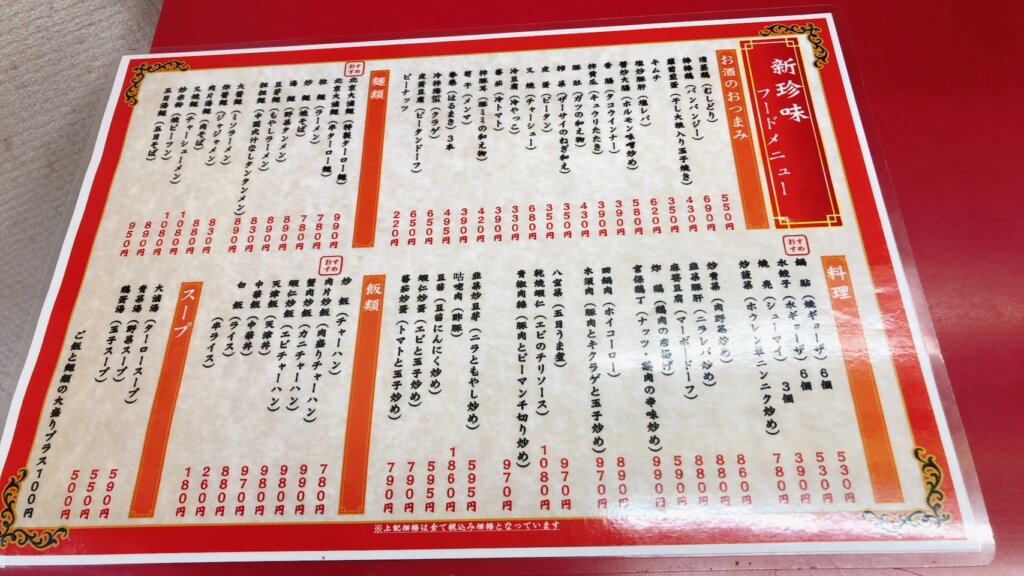 新珍味
フードメニュー
お酒のおつまみ
清蒸鶏(むしどり) 550円
棒棒鶏(バンバンジー) 690円
蘿蔔煎蛋(干し大根入り玉子焼き) 430円
キムチ 350円
塩炒豚肝(塩レバ) 620円
醤炒大腸(ホルモン味噌炒め) 580円
香腸(タコウインナー) 390円
拌黄瓜(キュウリたたき) 390円
豚肚(ガツの和え物) 430円
搾菜(ザーサイのねぎ和え) 350円
皮蛋(ピータン) 350円
叉焼(チャーシュー) 680円
冷豆腐(冷やっこ) 330円
蕃茄(冷トマト) 390円
拌豚耳(豚ミミの和え物) 420円
筍干(メンマ) 390円
春巻(はるまき)3本 495円
冷拌海蜇(クラゲ) 650円
皮蛋豆腐(ピータンドーフ) 650円
ピーナッツ 220円
麺類
おすすめ
北京大滷麺(特製ターロー麺) 990円
北京大滷麺(半ターロー麺) 780円
拉麺(ラーメン) 780円
炒麺(焼そば) 780円
湯麺(野菜タンメン) 890円
豆芽麺(もやしラーメン) 890円
担担麺(中国式汁なしタンタンメン) 890円
大醤麺(ミソラーメン) 830円
炸醤麺(ジャジャメン) 890円
肉片湯麺(肉そば) 830円
叉焼麺(チャーシューメン) 1080円
炒米粉(焼ビーフン) 890円
五目湯麺(五目そば) 950円
料理
おすすめ
鍋貼(焼ギョーザ) 6個 530円
水餃子(水ギョーザ) 6個 530円
焼売(シューマイ) 3個 390円
炒菠菜(ホウレン草ニンニク炒め) 780円
炒青菜(肉野菜炒め) 860円
韮菜豚肝(ニラレバ炒め) 880円
麻婆豆腐(マーボードーフ) 880円
炸鶏(鶏肉の唐揚げ) 590円
宮保鶏丁(ナッツ・鶏肉の辛味炒め) 990円
回鍋肉(ホイコーロー) 890円
木須肉(豚肉とキクラゲと玉子炒め) 970円
八宝菜(五目うま煮) 970円
乾焼蝦仁(エビのチリソース) 1080円
青椒肉絲(豚肉とピーマン千切り炒め) 970円
韮菜炒豆芽(ニラともやし炒め) 595円
咕咾肉(酢豚) 1860円
豆苗(豆苗にんにく炒め) 595円
蝦仁炒蛋(エビと玉子炒め) 790円
蕃茄炒蛋(トマトと玉子炒め) 790円
飯類
おすすめ
炒飯(チャーハン) 780円
肉片炒飯(肉盛りチャーハン) 990円
蟹肉炒飯(カニチャーハン) 990円
蝦仁炒飯(エビチャーハン) 980円
天津飯(天津丼) 970円
中華飯(中華丼) 880円
白飯(ライス) 260円
(半ライス) 180円
スープ
大滷湯(タースープ) 590円
青菜湯(野菜スープ) 550円
鶏蛋湯(玉子スープ) 500円
ご飯と麺類の大盛りプラス100円
※上記価格は全て税込み価格となっています